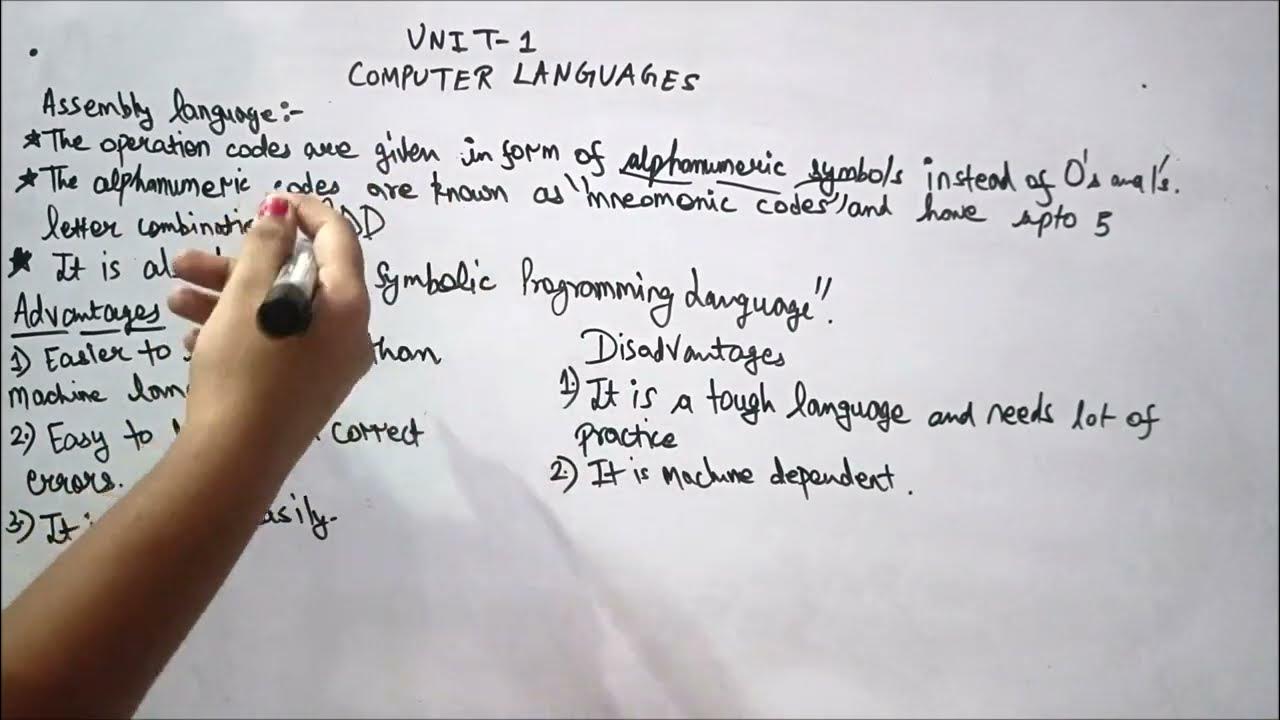 UNIT-1
COMPUTER LANGUAGES
Assembly language:-
*The operation codes are given in form of alphanumeric symbols instead of 0's and 1's.
*The alphanumeric codes are known as "mneomonic codes" and have upto 5
letter combination DD
* It is Symbolic Programming Language".
Advantages
1) Easier to than
Machine
2.) Easy to correct
errors.
3.) It easily.
Disadvantages
1.) It is a tough language and needs lot of
practice
2.) It is Machine dependent.